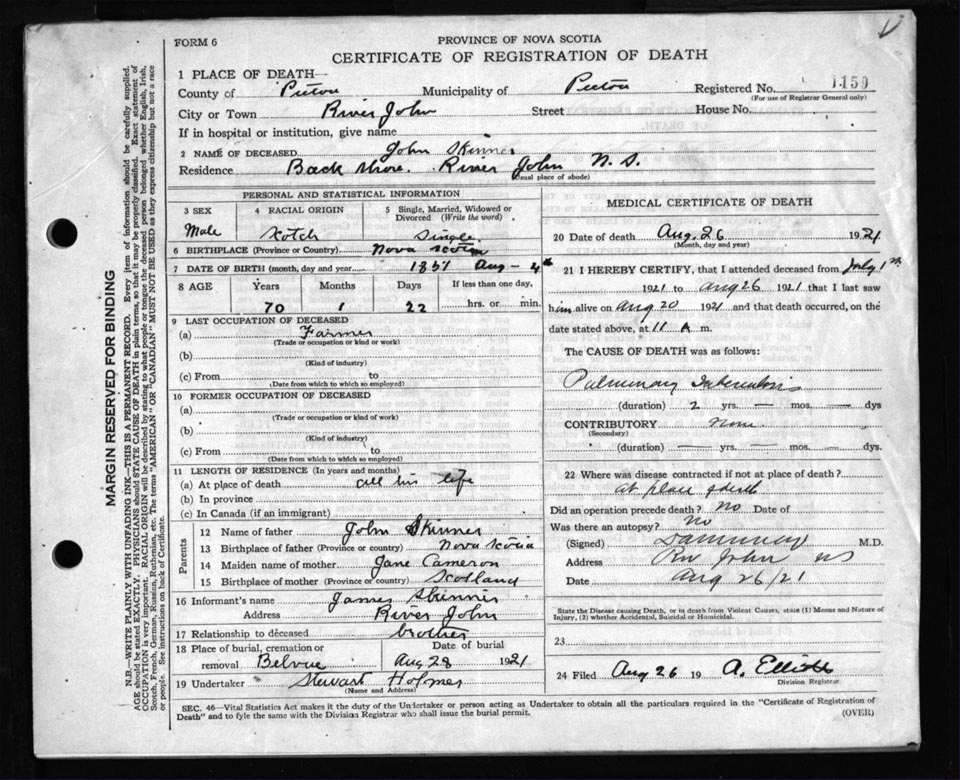 FORM 6
PROVINCE OF NOVA SCOTIA
CERTIFICATE OF REGISTRATION OF DEATH
1 PLACE OF DEATH—
County of Pictou Municipality of Pictou Registered No. 1159
(For use of Registrar General only)
City or Town River John Street House No.
If in hospital or institution, give name
2 NAME OF DECEASED John Skinner
Residence Back shore. River John N. S.
(Usual place of abode)
PERSONAL AND STATISTICAL INFORMATION
3 SEX 4 RACIAL ORIGIN 5 Single, Married, Widowed or Divorced (Write the word)
Male Scotch Single
6 BIRTHPLACE (Province or Country) Nova Scotia
7 DATE OF BIRTH (month, day and year) 1851 Aug - 4th
8 AGE Years Months Days If less than one day,
70 1 22 hrs. or min.
9 LAST OCCUPATION OF DECEASED
(a) Farmer
(Trade or occupation or kind or work)
(b)
(Kind of industry)
(c) From to
(Date from which to which so employed)
10 FORMER OCCUPATION OF DECEASED
(a)
(Trade or occupation or kind or work)
(b)
(Kind of industry)
(c) From to
(Date from which to which so employed)
11 LENGTH OF RESIDENCE (In years and months)
(a) At place of death all his life
(b) In province
(c) In Canada (if an immigrant)
Parents
12 Name of father John Skinner
13 Birthplace of father (Province or country) Nova Scotia
14 Maiden name of mother Jane Cameron
15 Birthplace of mother (Province or country) Scotland
16 Informant's name James Skinner
Address River John
17 Relationship to deceased brother
18 Place of burial, cremation or removal Belvue Date of burial Aug 28 1921
19 Undertaker Stewart Holmes
(Name and Address)
MEDICAL CERTIFICATE OF DEATH
20 Date of death Aug. 26 1921
(Month, day and year)
21 I HEREBY CERTIFY, that I attended deceased from July 1st
1921 to Aug 26 1921 that I last saw
him alive on Aug 20 1921 and that death occurred, on the
date stated above, at 11 A m.
The CAUSE OF DEATH was as follows:
Pulmonary Tuberculosis
(duration) 2 yrs. — mos. — dys
CONTRIBUTORY none
(Secondary)
(duration) — yrs. — mos. — dys.
22 Where was disease contracted if not at place of death?
at place of death
Did an operation precede death? no Date of
Was there an autopsy? no
(Signed) M.D.
Address Riv John NS
Date Aug 26/21
State the Disease causing Death, or in death from Violent Causes, state (1) Means and Nature of
Injury, (2) whether Accidental, Suicidal or Homicidal.
23
24 Filed Aug 26 19 A. Elliott
Division Registrar
SEC. 46—Vital Statistics Act makes it the duty of the Undertaker or person acting as Undertaker to obtain all the particulars required in the "Certificate of Registration of
Death" and to fyle the same with the Division Registrar who shall issue the burial permit.
(OVER)
MARGIN RESERVED FOR BINDING
N.B.—WRITE PLAINLY WITH UNFADING INK—THIS IS A PERMANENT RECORD. Every item of information should be carefully supplied.
AGE should be stated EXACTLY. PHYSICIANS should STATE CAUSE OF DEATH in plain terms, so that it may be properly classified. Exact statement of
OCCUPATION is very important. RACIAL ORIGIN will be described by stating to what people or tongue the deceased person belonged whether English, Irish,
Scotch, French, German, Russian, Ruthenian, etc. The terms "AMERICAN" OR "CANADIAN" MUST NOT BE USED as they express citizenship but not a race
or people. See instructions on back of Certificate.